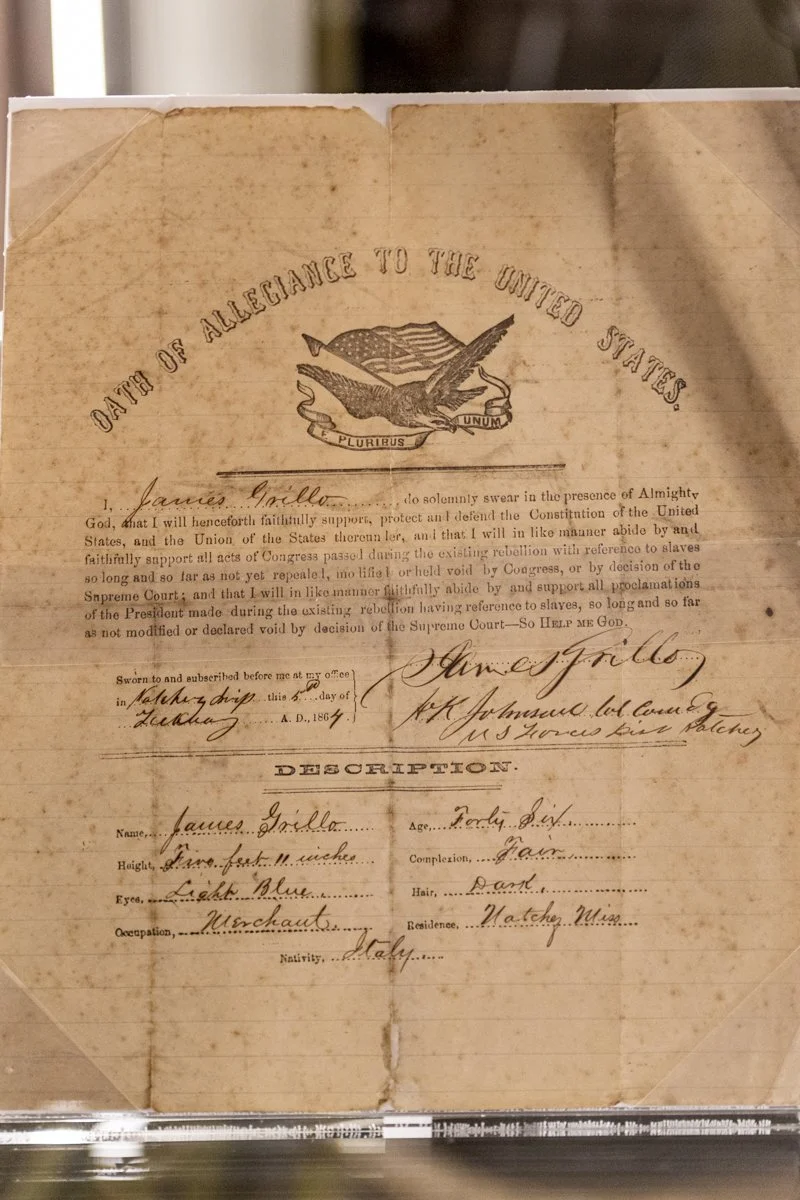 OATH OF ALLEGIANCE TO THE UNITED STATES.
E PLURIBUS UNUM
I, James Grillo, do solemnly swear in the presence of Almighty
God, that I will henceforth faithfully support, protect and defend the Constitution of the United
States, and the Union of the States thereunder, and that I will in like manner abide by and
faithfully support all acts of Congress passed during the existing rebellion with reference to slaves
so long and so far as not yet repealed, modified or held void by Congress, or by decision of the
Supreme Court; and that I will in like manner faithfully abide by and support all proclamations
of the President made during the existing rebellion having reference to slaves, so long and so far
as not modified or declared void by decision of the Supreme Court—So HELP ME GOD.
James Grillo
Sworn to and subscribed before me at my office
in Natchez Miss this 5 day of
A. D., 1864
A K Johnson Col Comdg
U S Forces Dist Natchez
DESCRIPTION.
Name, James Grillo
Age, Forty Six
Height, Five feet 11 inches
Complexion, Fair
Eyes, Light Blue
Hair, Dark
Occupation, Merchant
Residence, Natchez Miss
Nativity, Italy